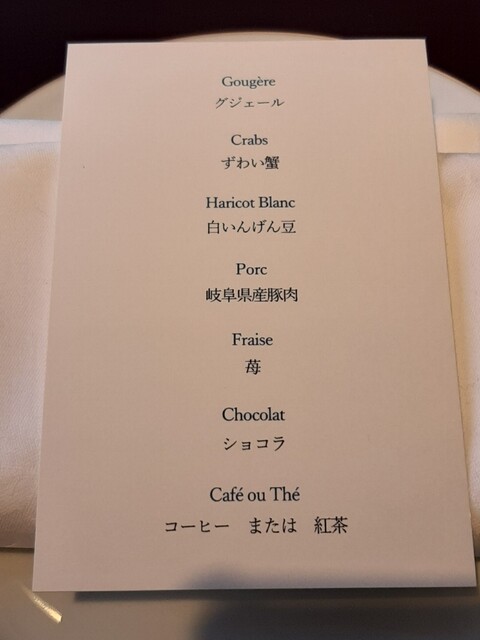 Gougère
グジェール
Crabs
ずわい蟹
Haricot Blanc
白いんげん豆
Porc
岐阜県産豚肉
Fraise
苺
Chocolat
ショコラ
Café ou Thé
コーヒー　または　紅茶